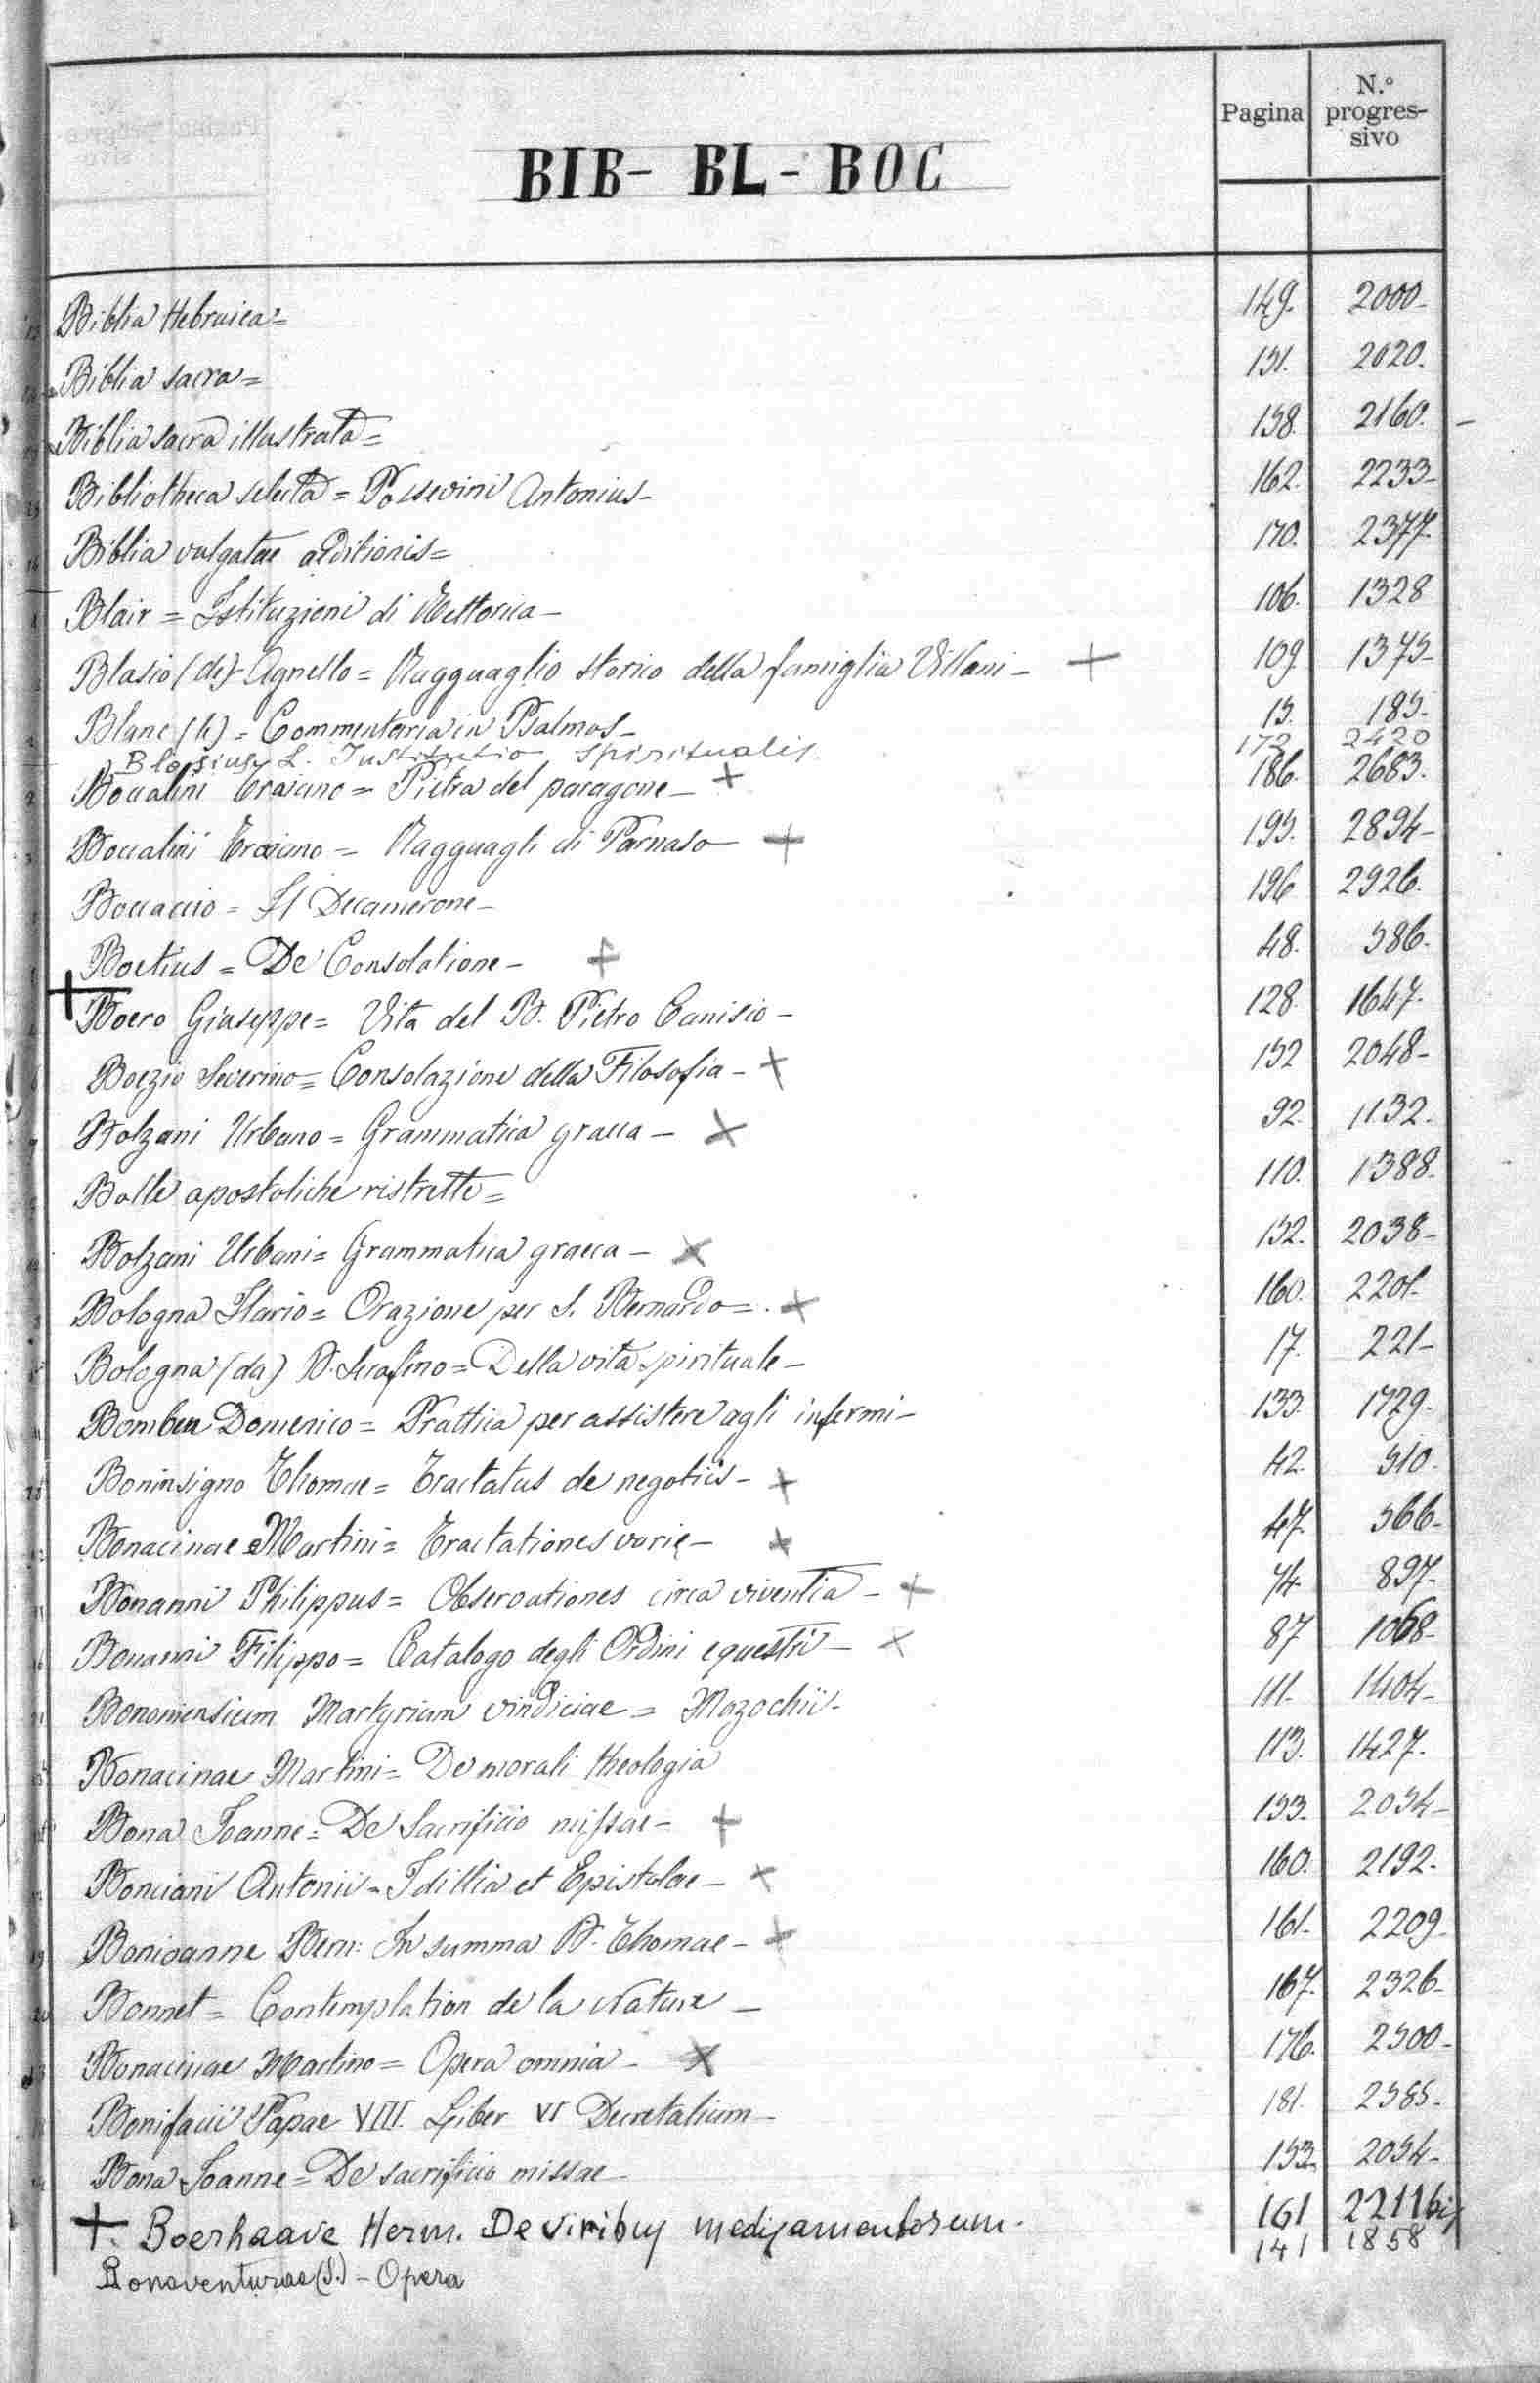 Pagina N.° progres- sivo
BIB - BL - BOC
Biblia Hebraica = 149. 2000-
Biblia sacra = 151. 2020.
Biblia sacra illustrata = 158. 2160. -
Bibliotheca selecta = Possevini Antonius - 162. 2233-
Biblia vulgatae aeditionis = 170. 2377.
Blair = Istituzioni di Rettorica - 106. 1328
Blasio (de) Agnello = Ragguaglio storico della famiglia Villani - + 109. 1375-
Blanc (le) = Commentaria in Psalmos - 15. 185.
Blosius L. Institutio spiritualis. 172 2420
Boccalini Traiano = Pietra del paragone - + 186. 2683.
Boccalini Traiano = Ragguagli di Parnaso + 195. 2894-
Boccaccio = Il Decamerone - 196 2926.
Boetius = De Consolatione - + 48. 586.
+ Boero Giuseppe = Vita del B. Pietro Canisio - 128. 1647.
Boezio Severino = Consolazione della Filosofia - + 152 2048-
Bolzani Urbano = Grammatica graeca - + 92. 1132.
Bolle apostoliche ristrette = 110. 1388.
Bolzani Urbani = Grammatica graeca - + 152. 2038-
Bologna Ilario = Orazione per S. Bernardo = . + 160. 2201.
Bologna (da) B. Serafino = Della vita spirituale - 17. 221-
Bomben Domenico = Prattica per assistere agli infermi - 133. 1729.
Boninsigno Thomae = Tractatus de negotiis - + 42. 510.
Bonacinae Martini = Tractationes varie - + 47. 566-
Bonanni Philippus = Observationes circa viventia - + 74. 897.
Bonanni Filippo = Catalogo degli Ordini equestri - + 87 1068-
Bononiensium Martyrium vindiciae = Mazochii - 111. 1404-
Bonacinae Martini = De morali theologia 113. 1427.
Bona Joanne = De Sacrificio missae - + 153. 2054-
Bonciani Antonii = Idillia et Epistolae - + 160. 2192.
Bonioanne Bern: In summa D. Thomae - + 161. 2209.
Bonnet = Contemplation de la Nature - 167. 2326-
Bonacinae Martino = Opera omnia - + 176. 2500-
Bonifacii Papae VIII. Liber VI Decretalium - 181. 2585-
Bona Joanne = De sacrificio missae - 153. 2054-
+. Boerhaave Herm. De viribus medicamentorum. 161 2211 bis
Bonaventurae (S.) - Opera 141 1858